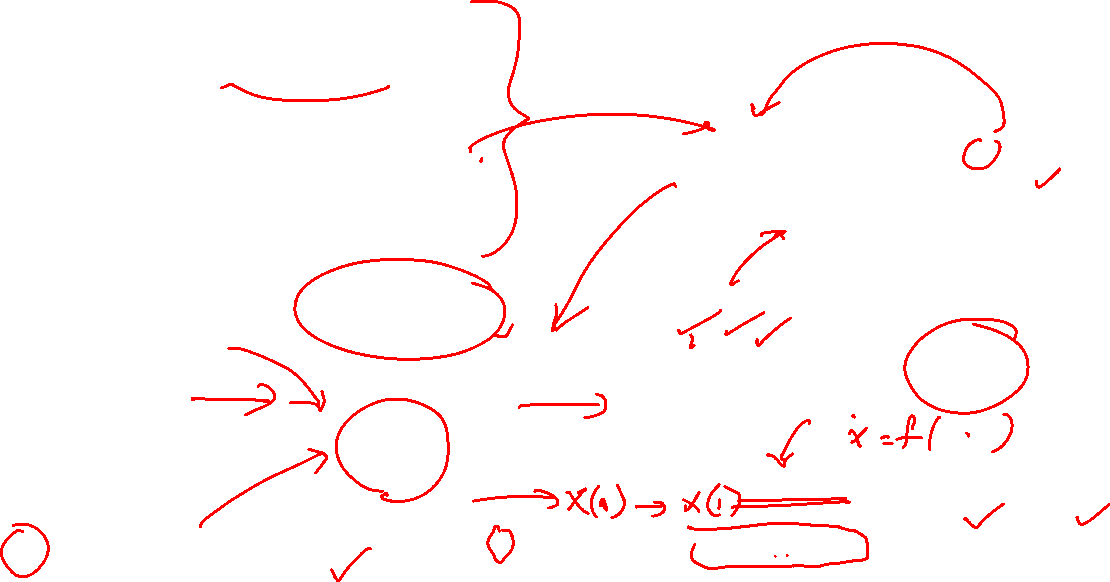 ẋ = f( · )
x(0) → x(1)